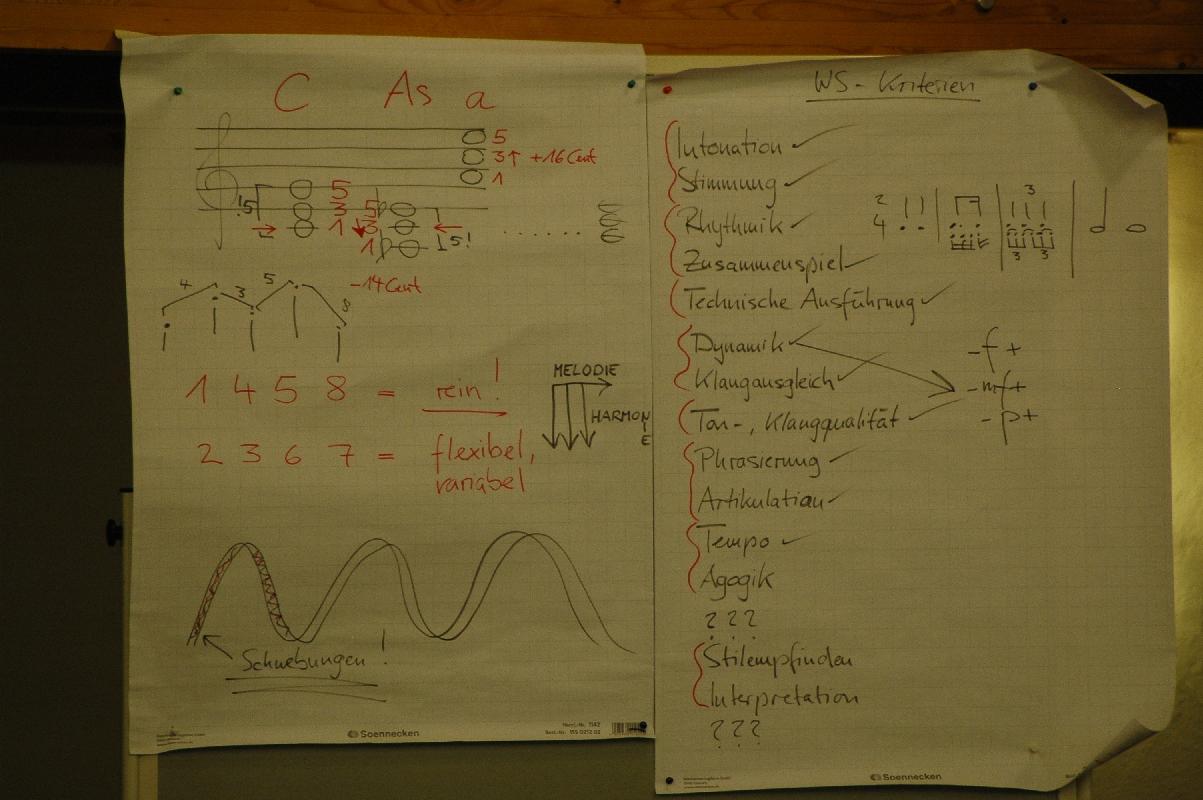 C As a
5
3↑ +16 Cent
1
!5 5 5
3 3
1 1 5!
. . . . . .
-14 Cent
4 3 5 8
1 4 5 8 = rein!
2 3 6 7 = flexibel,
variabel
MELODIE
HARMONIE
Schwebungen!
Soennecken
WS-Kriterien
Intonation ✓
Stimmung ✓
Rhythmik ✓
2
4
3
3 3
Zusammenspiel ✓
Technische Ausführung ✓
Dynamik ✓
- f +
Klangausgleich ✓
- mf +
Ton-, Klangqualität ✓
- p +
Phrasierung ✓
Artikulation ✓
Tempo ✓
Agogik
? ? ?
Stilempfinden
Interpretation
? ? ?
Soennecken